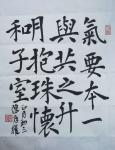 氣要本一
與共之升
明抱珠懷
和子室